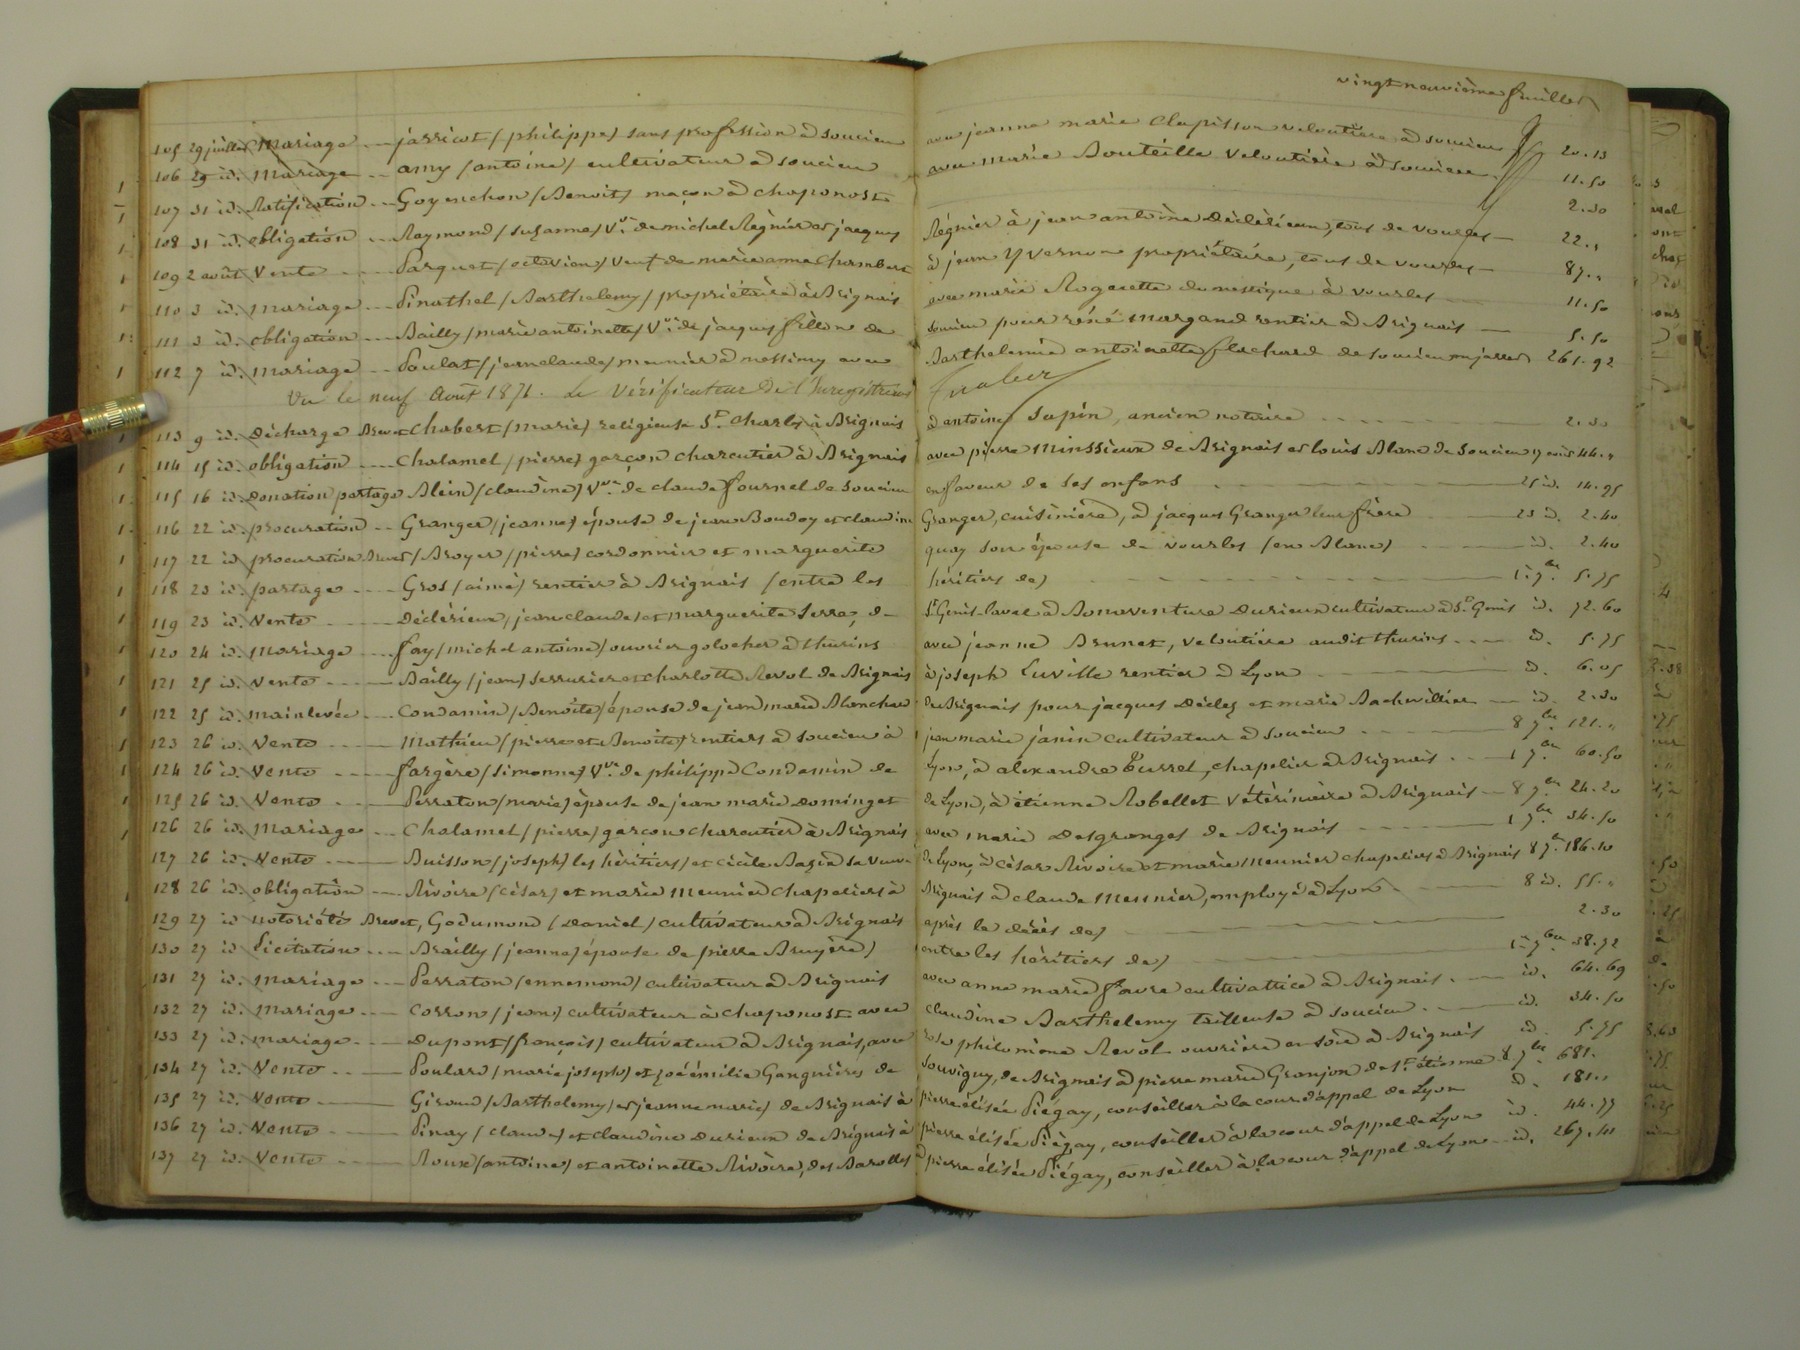 vingt neuvième feuillet
105 29 juillet Mariage jarricot (philippe) sans profession à soucieu avec jeanne marie Clapisson veloutière à soucieu 20.13
106 29 id. Mariage amy (antoine) cultivateur à soucieu avec marie Bouteille veloutière à soucieu 11.50
107 31 id. Ratification Goyenchon (Benoit) maçon à chaponost 2.30
108 31 id. obligation Raymond (suzanne) Ve. de michel Régnier et jacques Régnier à jean antoine Déclérieux, tous de vourles 22.„
109 2 août Vente Parquet (octavien) veuf de marie anne Chambert à jean Vernon propriétaire, tous de vourles 87.„
110 3 id. mariage Pinathel (Barthelemy) propriétaire à Brignais avec marie Rogerette domestique à vourles 11.50
111 3 id. obligation Bailly (marie antoinette) Ve. de jacques fillon de soucieu pour réné margand rentier à Brignais 5.50
112 7 id. mariage Poulat (jean claude) meunier à messimy avec Barthelemie antoinette flachard de soucieu en jarret 261.92
Vu le neuf Août 1871. Le Vérificateur de l'Enregistrement
113 9 id. Décharge Brevet Chabert (marie) religieuse St. Charles à Brignais à antoine Sapin, ancien notaire 2.30
114 15 id. obligation Chalamel (pierre) garçon charcutier à Brignais avec pierre Minssieux de Brignais et louis Blanc de Soucieu 17 août 44.„
115 16 id. Donation partage Blein (claudine) Vve. de claude fournel de soucieu en faveur de ses enfans 25 id. 14.95
116 22 id. procuration Granger (jeanne) épouse de jean Boudoy et claudine Granger, cuisinière, à jacques Granger leur frère 23 id. 2.40
117 22 id. procuration Brevet (Broyer (pierre) cordonnier et marguerite quay son épouse de vourles (en Blanc) id. 2.40
118 23 id. partage Gros (aimé) rentier à Brignais (entre les héritiers de) 1er 7bre. 5.75
119 23 id. Vente Déclérieux (jean claude) et marguerite Serre, de St. Genis-Laval à Bonaventure Durieux cultivateur à St. Genis id. 72.60
120 24 id. Mariage fay (michel antoine) ouvrier galocher à thurins avec jeanne Brunet, veloutière audit thurins id. 5.75
121 25 id. Vente Bailly (jean) serrurier et charlotte Revol de Brignais à joseph Luville rentier à Lyon id. 6.05
122 25 id. mainlevée Condamin (Benoite) épouse de jean marie Blanchard de Brignais pour jacques Déclez et marie Bachvillier id. 2.30
123 26 id. Vente Mathieu (pierre et Benoite) rentiers à soucieu à jean marie janin cultivateur à soucieu 8 7bre 121.„
124 26 id. Vente fargère (simonne) Vve. de philippe Condamin de Lyon, à alexandre Turrel, chapelier à Brignais 1 7bre 60.50
125 26 id. Vente Perraton (marie) épouse de jean marie Dominget de Lyon, à étienne Robellet vétérinaire à Brignais 8 7bre 24.20
126 26 id. Mariage Chalamel (pierre) garçon charcutier à Brignais avec marie Desgranges de Brignais 1 7bre 34.50
127 26 id. Vente Buisson (joseph) les héritiers) et cécile Bazin sa veuve de Lyon, à césar Rivoire et marie Meunier chapeliers à Brignais 8 7bre 186.10
128 26 id. obligation Rivoire (césar) et marie Meunier chapeliers à Brignais à claude Meunier, employé à Lyon 8 id. 55.„
129 27 id. notoriété Brevet, Godumond (Daniel) cultivateur à Brignais après le décès de) 2.30
130 27 id. Licitation Brailly (jeanne) épouse de pierre Bruyère) entre les héritiers de) 1er 7bre 38.72
131 27 id. Mariage Perraton (ennemond) cultivateur à Brignais avec anne marie favre cultivatrice à Brignais id. 64.69
132 27 id. Mariage Corron (jean) cultivateur à chaponost avec claudine Barthelemy tailleuse à soucieu id. 34.50
133 27 id. Mariage Dupont (françois) cultivateur à Brignais, avec rose philomène Revol ouvrière en soie à Brignais id. 5.75
134 27 id. Vente Poulard (marie joseph) et zoé émilie Gangnières de Souvigny, de Brignais à pierre marie Granjon de St. étienne 8 7bre 681.
135 27 id. Vente Giroud (Barthelemy) et jeanne marie) de Brignais à pierre élisée Piégay, conseiller à la cour d'appel de Lyon id. 181.„
136 27 id. Vente Pinay (claude) et claudine Durieux de Brignais à pierre élisée Piégay, conseiller à la cour d'appel de Lyon id. 44.77
137 27 id. Vente Roux (antoine) et antoinette Rivoire, des Barolles à pierre élisée Piégay, conseiller à la cour d'appel de Lyon id. 267.41